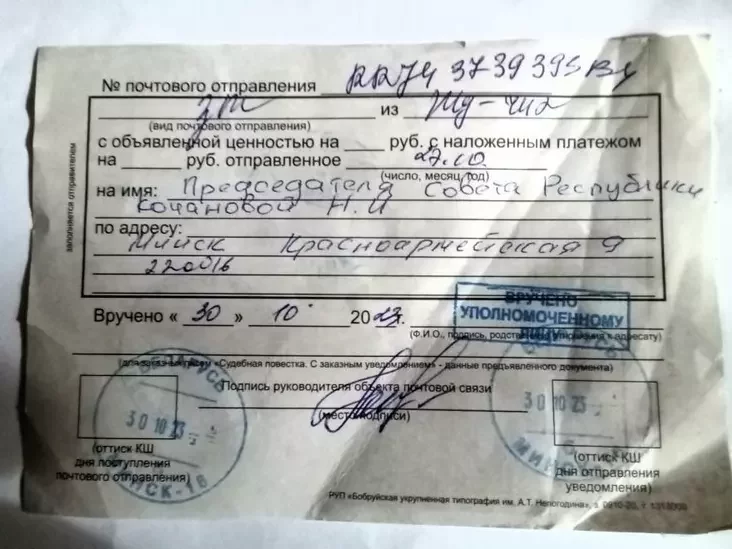 № почтового отправления RR74 3739395BY
из
(вид почтового отправления)
с объявленной ценностью на руб. с наложенным платежом
на руб. отправленное 27.10.
(число, месяц, год)
на имя: Председателя Совета Республики
Кочановой Н.И
по адресу:
Минск Красноармейская 9
220016
заполняется отправителем
Вручено « 30 » 10 2023г.
ВРУЧЕНО
УПОЛНОМОЧЕННОМУ
ЛИЦУ
(Ф.И.О., подпись, адресату)
(для заказных писем «Судебная повестка. С заказным уведомлением» - данные предъявленного документа)
Подпись руководителя объекта почтовой связи
(место подписи)
30 10 23
МИНСК-16
30 10 23
МИНСК
(оттиск КШ
дня поступления
почтового отправления)
(оттиск КШ
дня отправления
уведомления)
РУП «Бобруйская укрупненная типография им. А.Т. Непогодина», з. 0910-20, т.